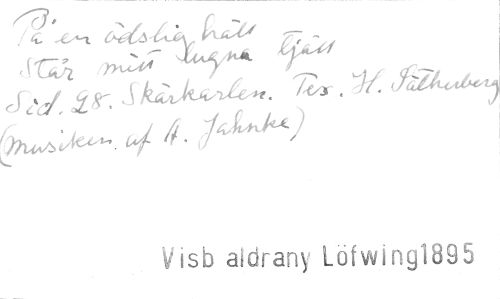 På en ödslig häll
Står mitt lugna tjäll
Sid. 28. Skärkarlen. Tex. H. Sätherberg
(musiken af A. Jahnke)
Visb aldrany Löfwing1895